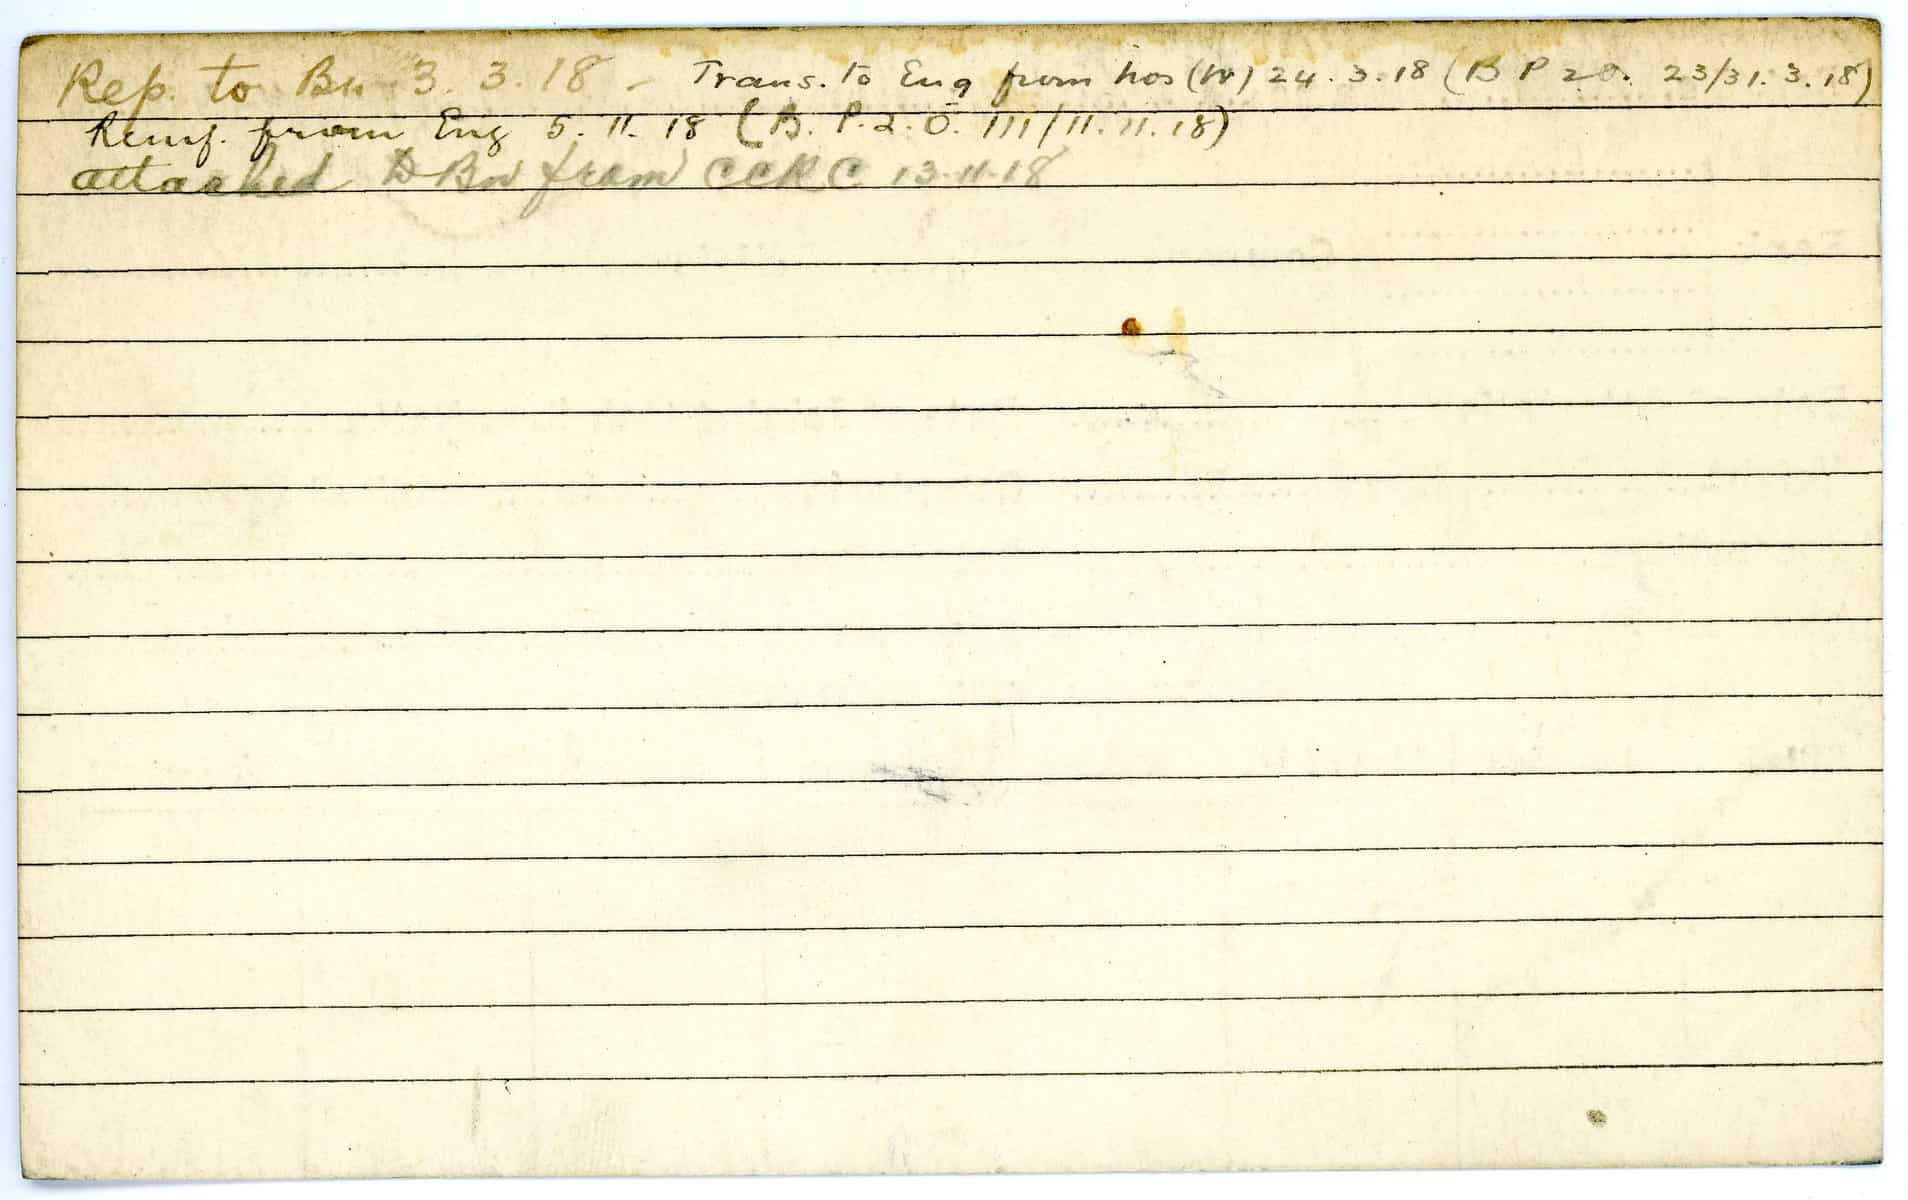 Rep. to Bn 3. 3. 18 - Trans. to Eng from hos (W) 24. 3. 18 (B P 2 O. 23/31. 3. 18)
Reinf. from Eng 5. 11. 18 (B. P. 2. O. 111/11. 11. 18)
attached D Bn from CCRC 13-11-18